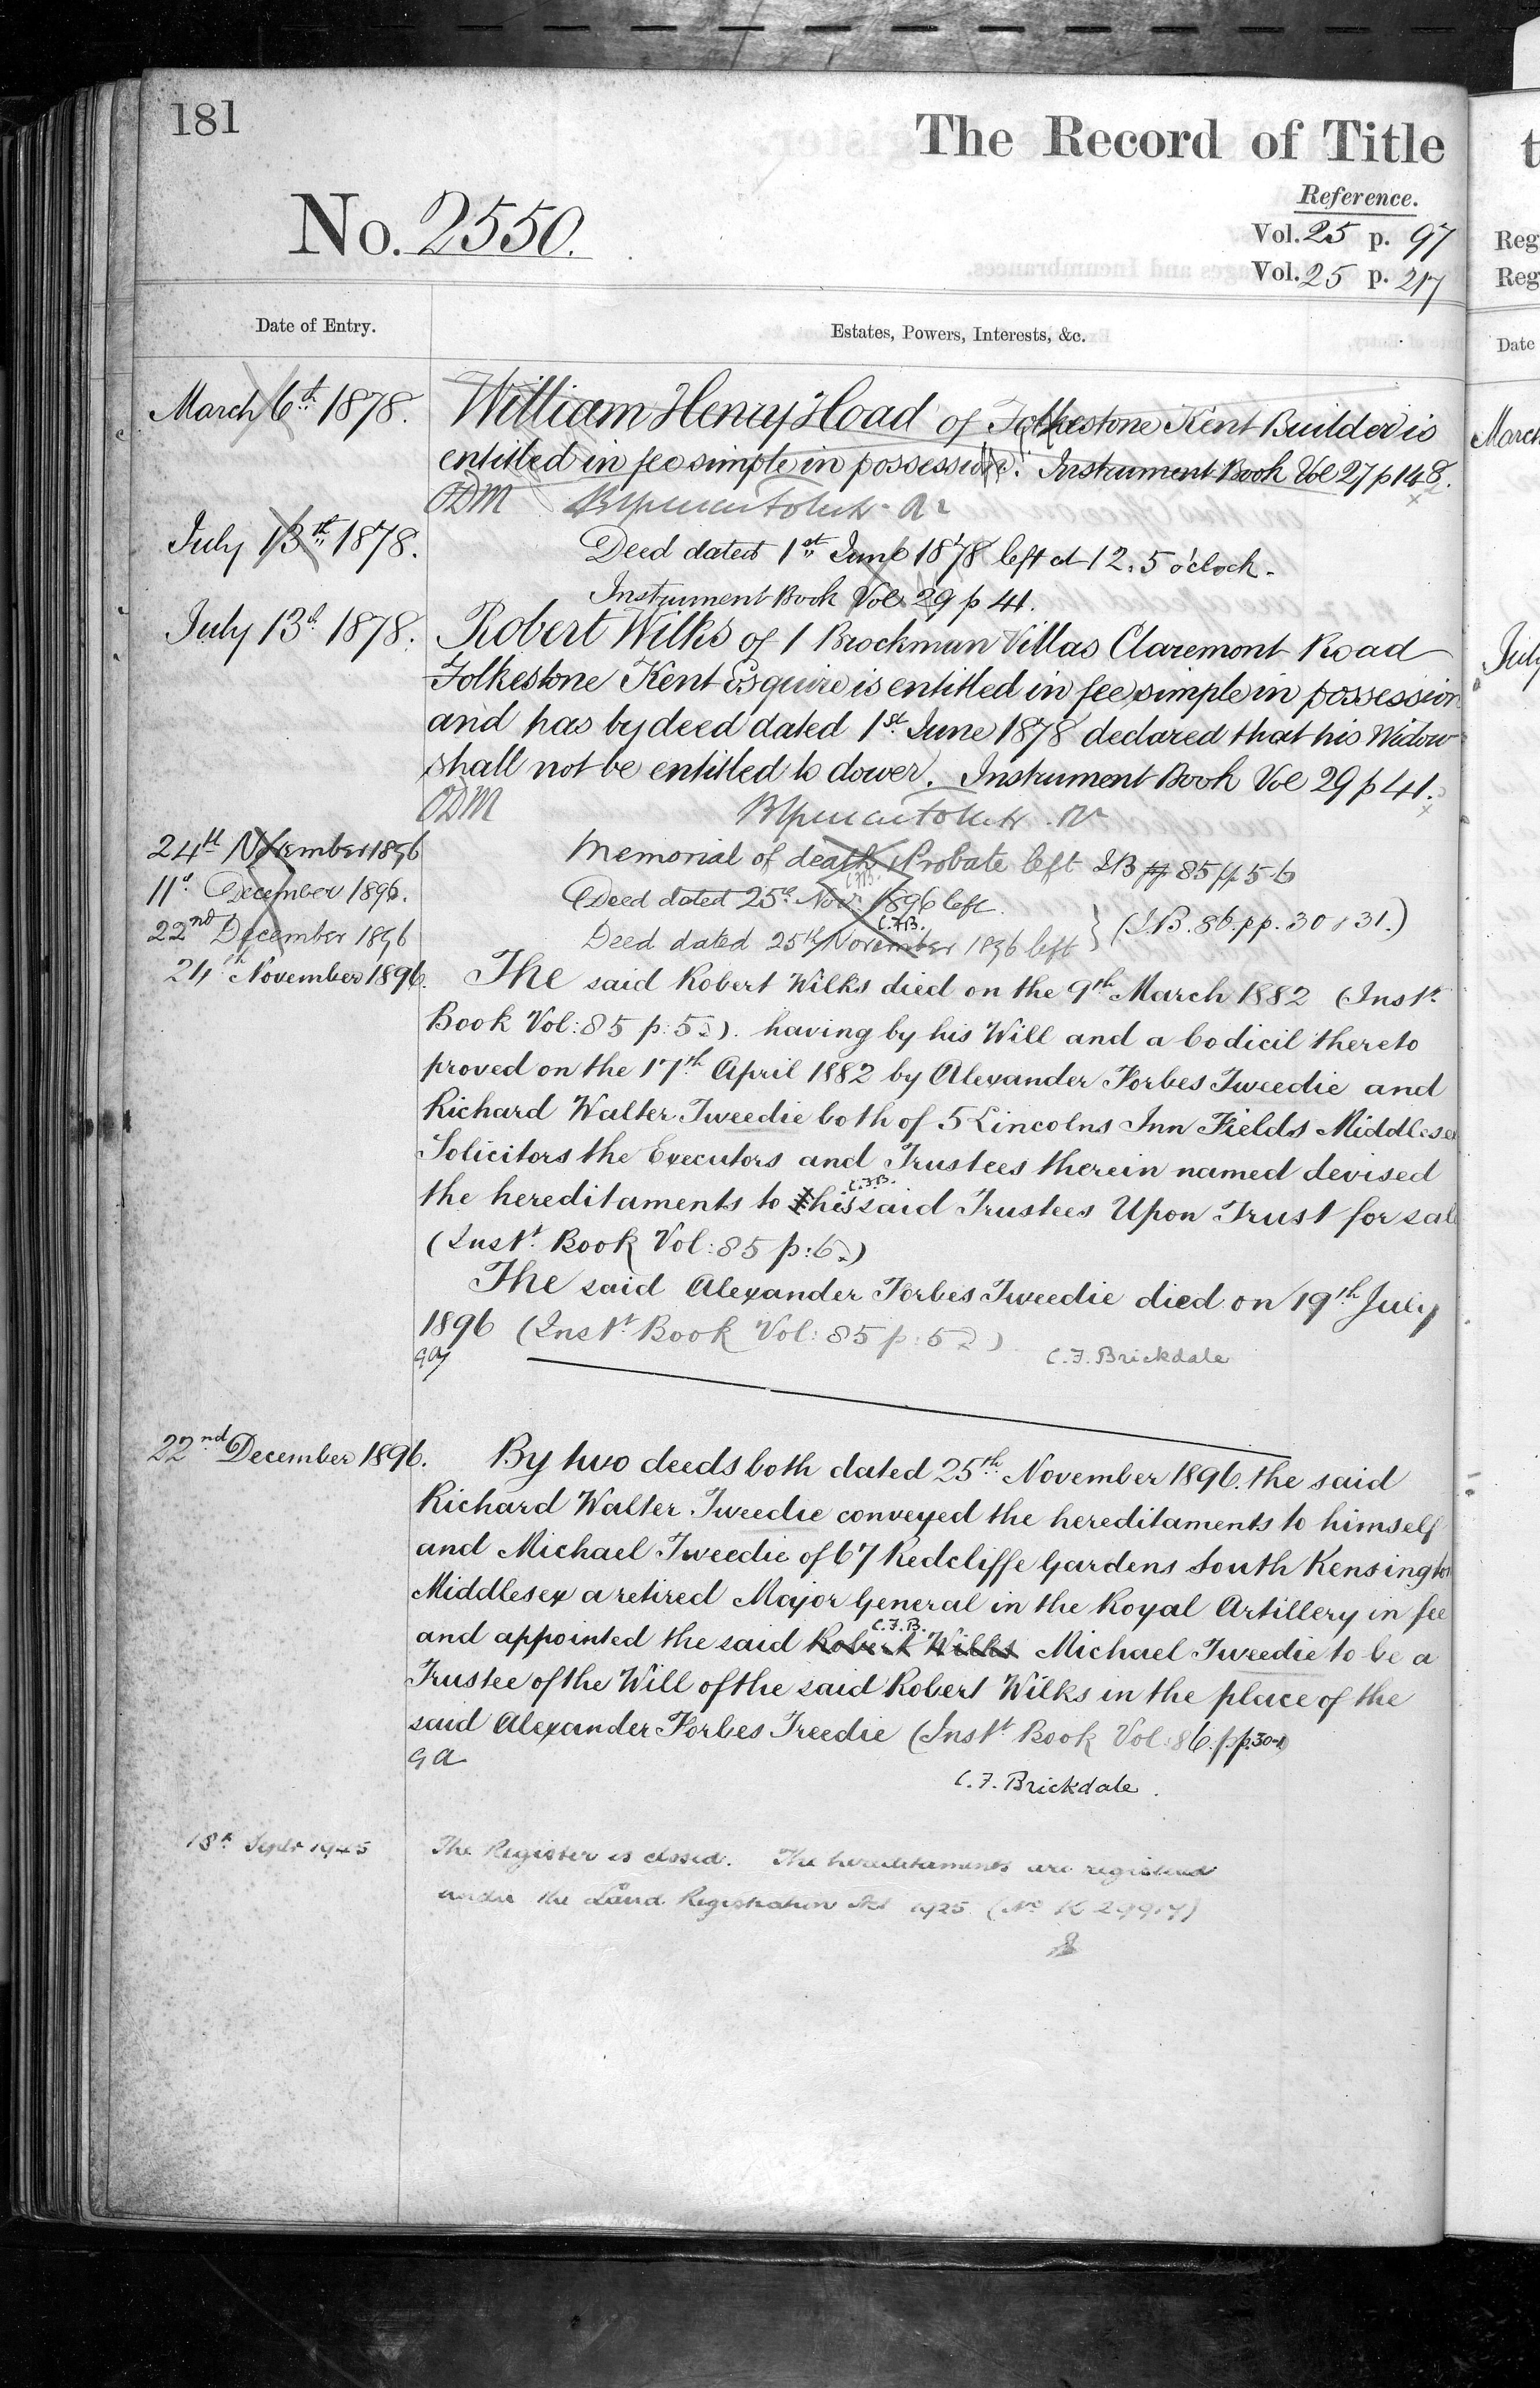 181
The Record of Title
Reference.
No. 2550.
Vol. 25 p. 97
Vol. 25 p. 217
Date of Entry.
Estates, Powers, Interests, &c.
March 6th 1878. William Henry Hoad of Folkestone Kent Builder is
entitled in fee simple in possession. Instrument Book Vol 27 p 148.
ODM
July 13th 1878. Deed dated 1st June 1878 left at 12.5 o'clock.
Instrument Book Vol 29 p 41.
July 13th 1878. Robert Wilks of 1 Brockman Villas Claremont Road
Folkestone Kent Esquire is entitled in fee simple in possession
and has by deed dated 1st June 1878 declared that his Widow
shall not be entitled to dower. Instrument Book Vol 29 p 41.
ODM
24th November 1896 Memorial of death & Probate left IB 85 pp 5-6
C.F.B.
11th December 1896. Deed dated 25th Nov. 1896 left.
C.F.B.
22nd December 1896 Deed dated 25th November 1896 left } (I.B. 86. pp. 30 & 31.)
24th November 1896. The said Robert Wilks died on the 9th March 1882 (Inst.
Book Vol: 85 p: 5.) having by his Will and a Codicil thereto
proved on the 17th April 1882 by Alexander Forbes Tweedie and
Richard Walter Tweedie both of 5 Lincolns Inn Fields Middlesex
Solicitors the Executors and Trustees therein named devised
C.F.B.
the hereditaments to his said Trustees Upon Trust for sale
(Inst. Book Vol: 85 p: 6.)
The said Alexander Forbes Tweedie died on 19th July
1896 (Inst. Book Vol: 85 p: 5)
C.F. Brickdale
22nd December 1896. By two deeds both dated 25th November 1896. the said
Richard Walter Tweedie conveyed the hereditaments to himself
and Michael Tweedie of 67 Redcliffe Gardens South Kensington
Middlesex a retired Major General in the Royal Artillery in fee
C.F.B.
and appointed the said Robert Wilks Michael Tweedie to be a
Trustee of the Will of the said Robert Wilks in the place of the
said Alexander Forbes Treedie (Inst. Book Vol: 86. pp. 30-1)
GA
C.F. Brickdale.
18th Sept 1945 The Register is closed. The hereditaments are registered
under the Land Registration Act 1925 (No K 29917)
t
Reg
Reg
Date
March
July